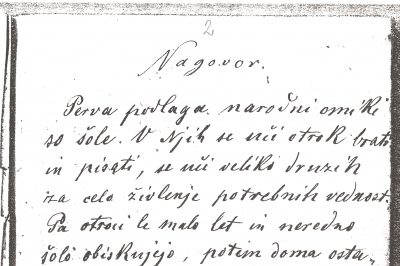 2
Nagovor.
Perva podlaga narodni omiki
so šole. V Njih se uči otrok brati
in pisati, se uči veliko druzih
za celo živlenje potrebnih vednost.
Pa otroci le malo let in neredno
šolo obiskujejo, potem doma osta-